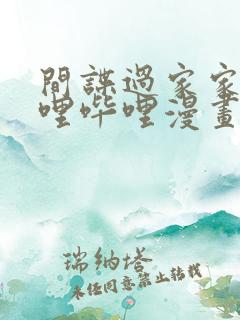 間諜過家家
哩哔哩漫畫
瑞纳塔
未经同意禁止转载